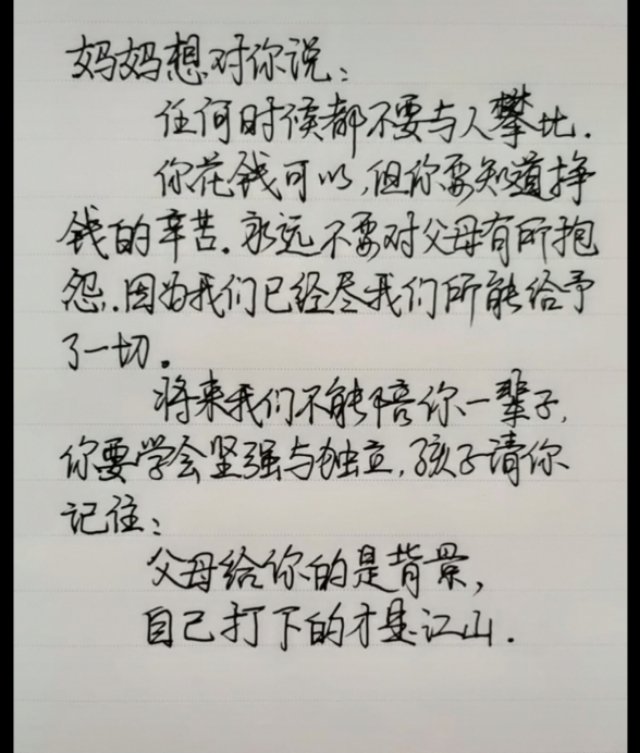 妈妈想对你说：
任何时候都不要与人攀比.
你花钱可以,但你要知道挣
钱的辛苦.永远不要对父母有所抱
怨.因为我们已经尽我们所能给予
了一切。
将来我们不能陪你一辈子,
你要学会坚强与独立,孩子请你
记住：
父母给你的是背景,
自己打下的才是江山.